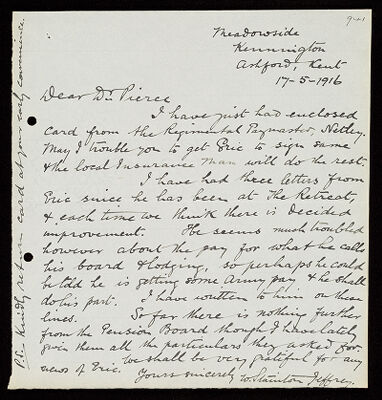 941
Meadowside
Kennington
Ashford, Kent
17-5-1916
Dear Dr Pierce
I have just had enclosed
card from the Regimental Paymaster, Netley.
May I trouble you to get Eric to sign same
& the local Insurance man will do the rest.
I have had three letters from
Eric since he has been at The Retreat,
& each time we think there is decided
improvement. He seems much troubled
however about the pay for what he calls
his board & lodging, so perhaps he could
be told he is getting some Army pay & he shall
do his part. I have written to him on these
lines. So far there is nothing further
from the Pension Board though I have lately
given them all the particulars they asked for.
We shall be very grateful for any
news of Eric.
Yours sincerely W. Stainton Jeffrey.
P.S. Kindly return card at your early convenience.